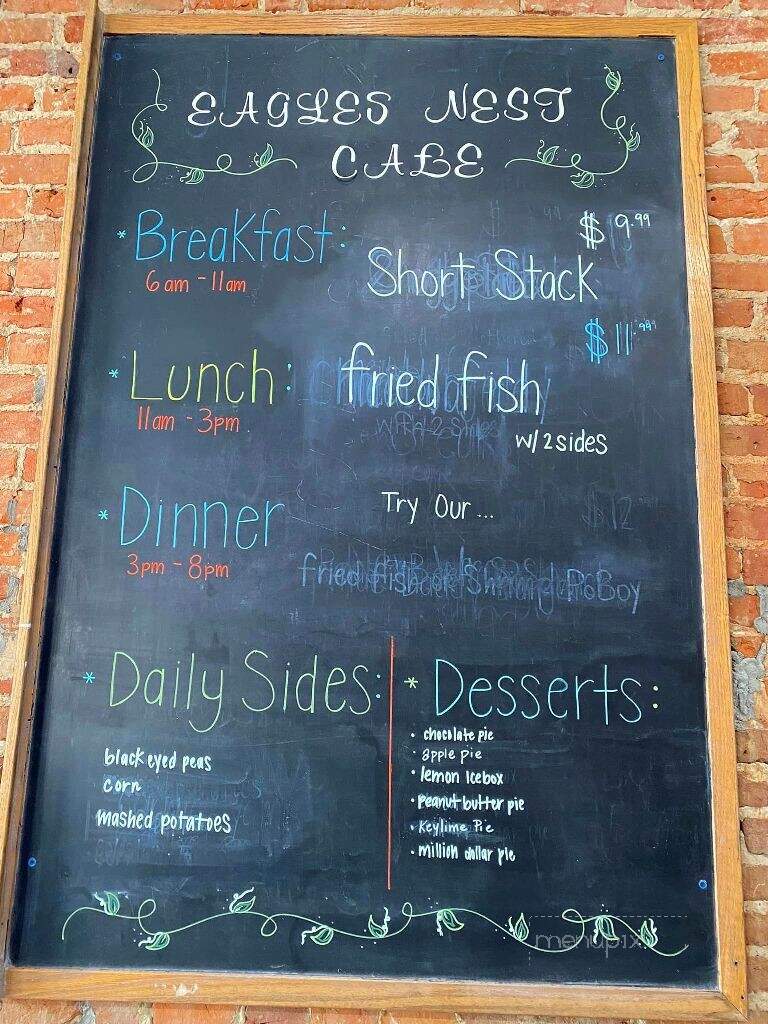 EAGLES NEST
CAFE
* Breakfast:
6am - 11am
$9.99
Short Stack
* Lunch:
11am - 3pm
$11.99
fried fish
w/ 2 sides
* Dinner
3pm - 8pm
Try Our...
$12
fried fish or Shrimp PoBoy
* Daily Sides:
black eyed peas
corn
mashed potatoes
* Desserts:
• chocolate pie
• apple pie
• lemon Icebox
• peanut butter pie
• Keylime Pie
• million dollar pie
menupix